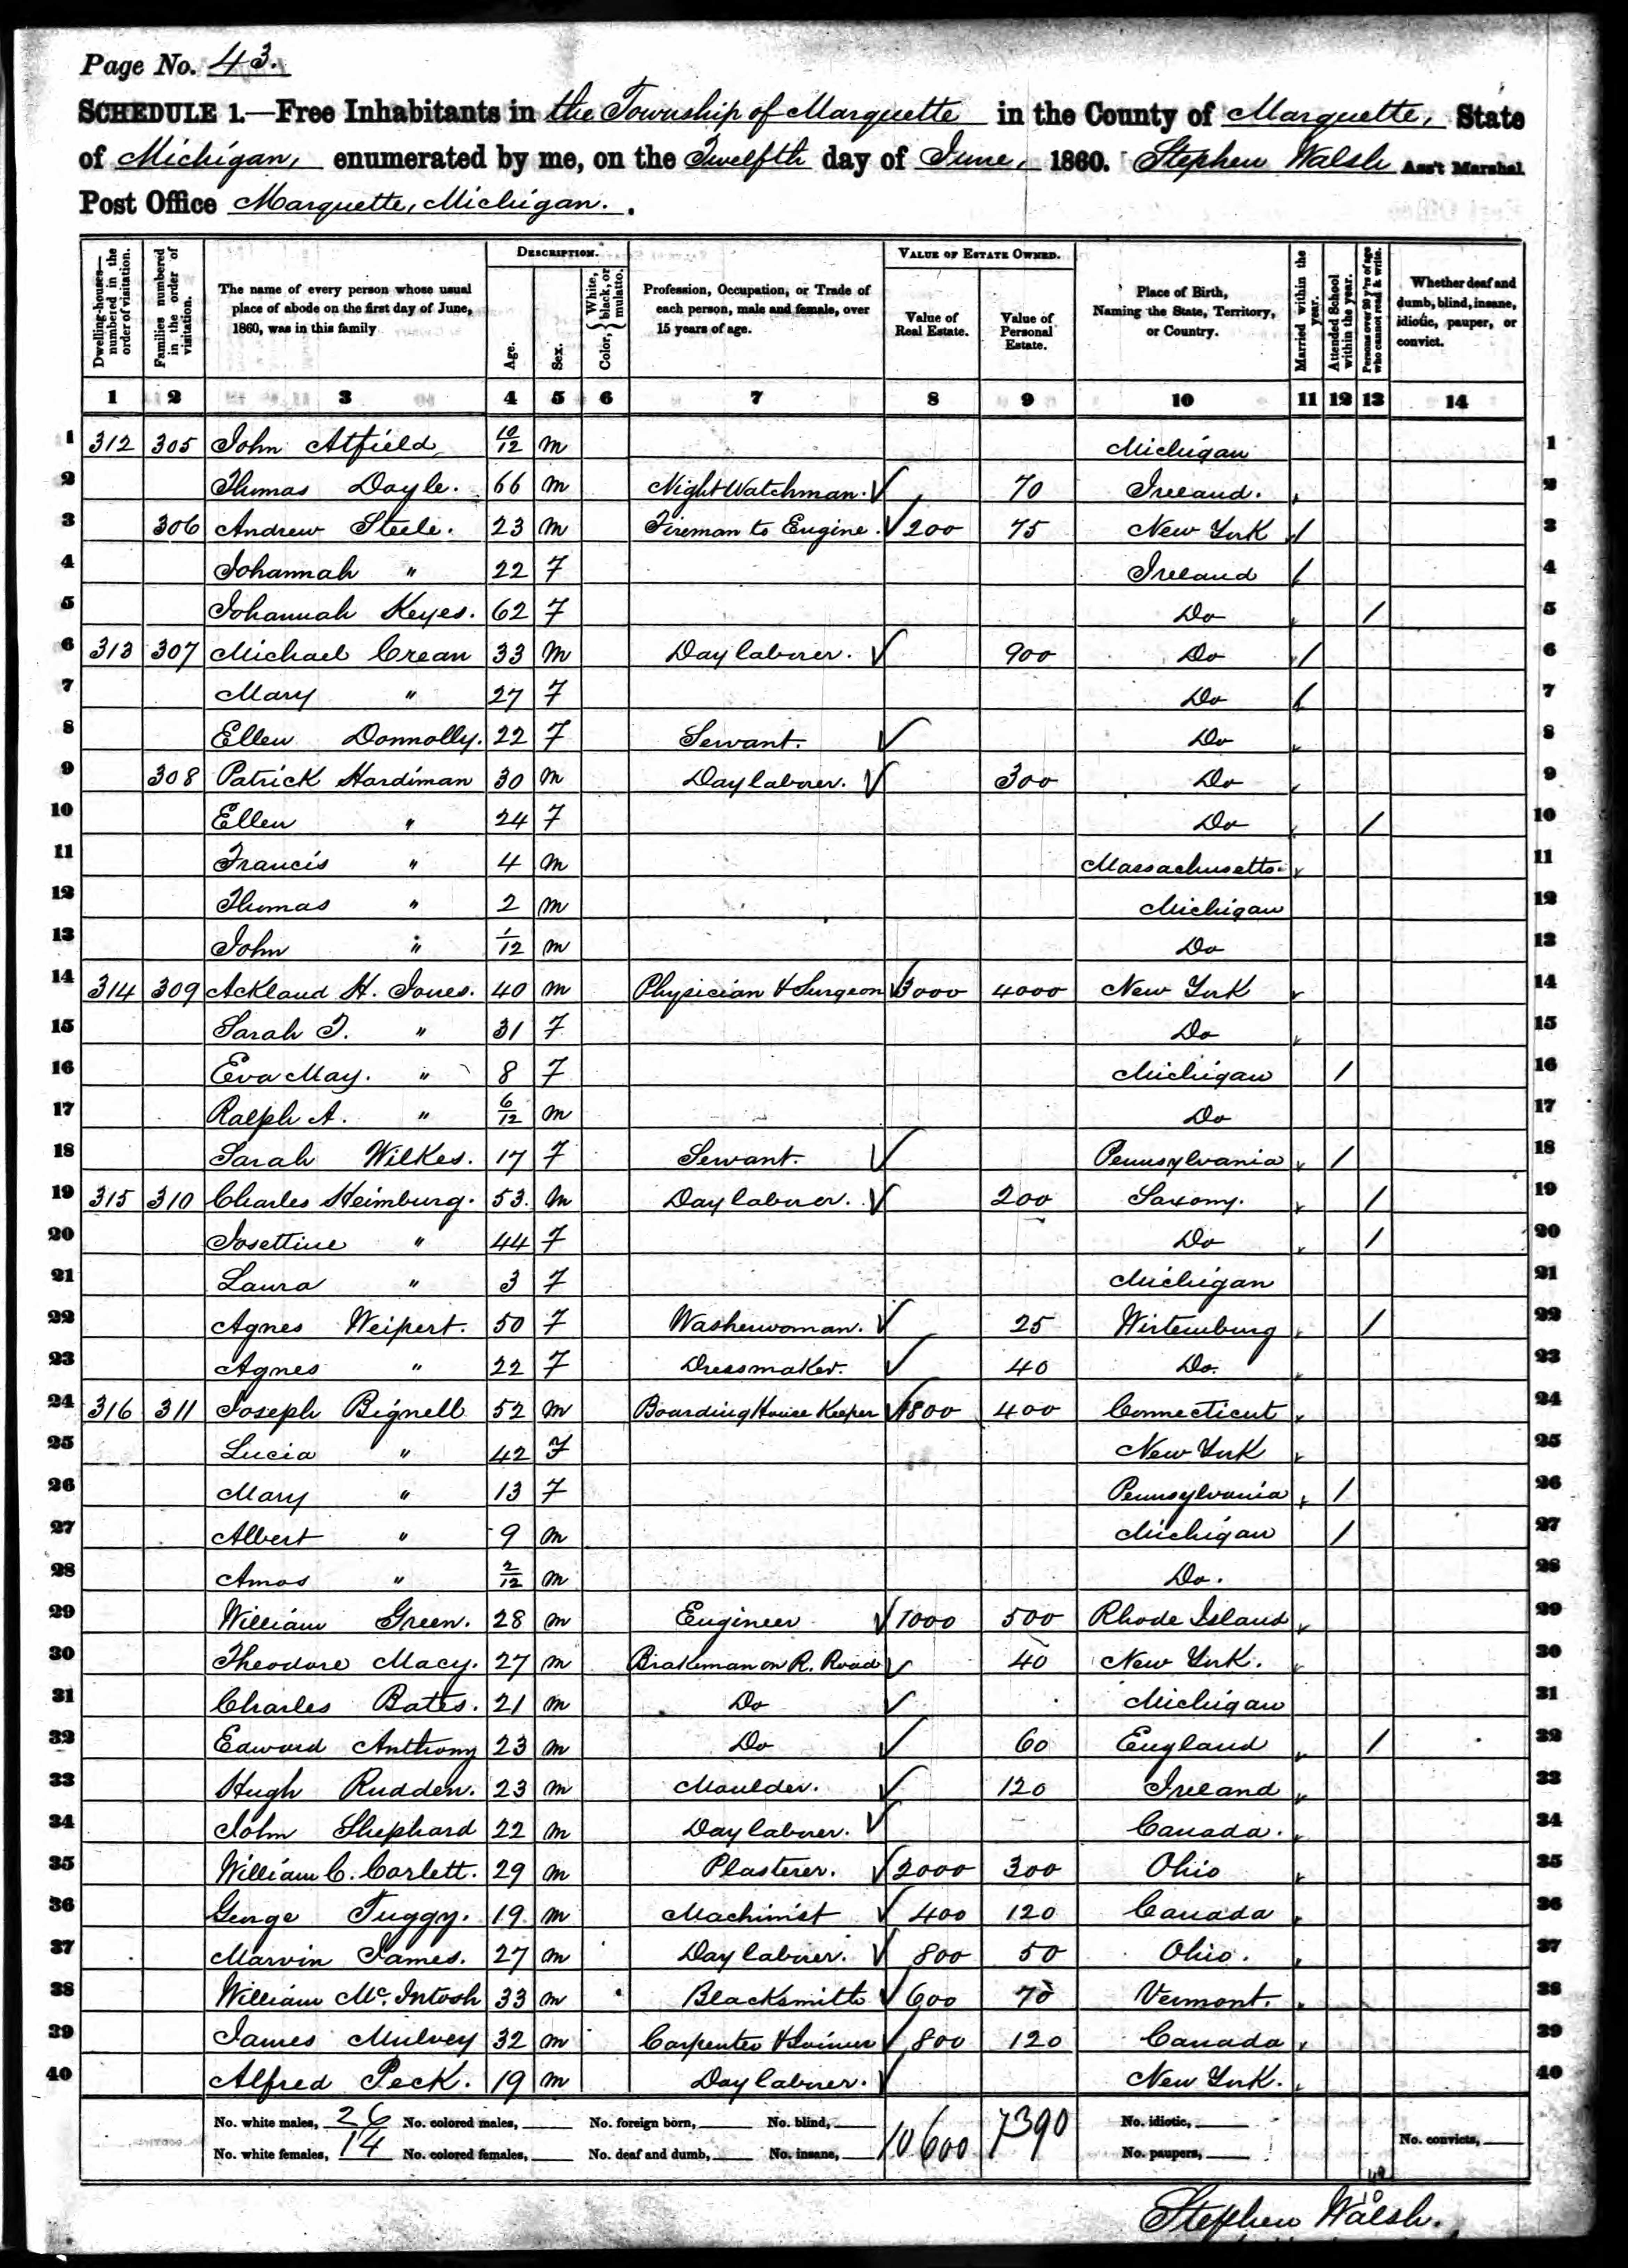 Page No. 43.
SCHEDULE 1.—Free Inhabitants in the Township of Marquette in the County of Marquette, State
of Michigan, enumerated by me, on the Twelfth day of June, 1860. Stephen Walsh Ass't Marshal
Post Office Marquette, Michigan.
Dwelling-houses—numbered in the order of visitation. Families numbered in the order of visitation. The name of every person whose usual place of abode on the first day of June, 1860, was in this family DESCRIPTION. Age. Sex. Color, { White, black, or mulatto. Profession, Occupation, or Trade of each person, male and female, over 15 years of age. VALUE OF ESTATE OWNED. Value of Real Estate. Value of Personal Estate. Place of Birth, Naming the State, Territory, or Country. Married within the year. Attended School within the year. Persons over 20 y'rs of age who cannot read & write. Whether deaf and dumb, blind, insane, idiotic, pauper, or convict.
1 2 3 4 5 6 7 8 9 10 11 12 13 14
1 312 305 John Atfield 10/12 m Michigan 1
2 Thomas Doyle. 66 m Night Watchman. ✓ 70 Ireland. 2
3 306 Andrew Steele. 23 m Fireman to Engine. ✓ 200 75 New York / 3
4 Johannah " 22 F Ireland / 4
5 Johannah Keyes. 62 F Do / 5
6 313 307 Michael Crean 33 m Day laborer. ✓ 900 Do / 6
7 Mary " 27 F Do / 7
8 Ellen Donnolly. 22 F Servant. ✓ Do 8
9 308 Patrick Hardiman 30 m Day laborer. ✓ 300 Do 9
10 Ellen " 24 F Do / 10
11 Francis " 4 m Massachusetts 11
12 Thomas " 2 m Michigan 12
13 John " 1/12 m Do 13
14 314 309 Ackland H. Jones. 40 m Physician & Surgeon ✓ 3000 4000 New York 14
15 Sarah T. " 31 F Do 15
16 Eva May. " 8 F Michigan / 16
17 Ralph A. " 6/12 m Do 17
18 Sarah Wilkes. 17 F Servant. ✓ Pennsylvania / 18
19 315 310 Charles Heimburg. 53. m Day laborer. ✓ 200 Saxony. / 19
20 Josettine " 44 F Do / 20
21 Laura " 3 F Michigan 21
22 Agnes Weipert. 50 F Washerwoman. ✓ 25 Wirtemburg / 22
23 Agnes " 22 F Dressmaker. ✓ 40 Do. 23
24 316 311 Joseph Bignell 52 m Boarding House Keeper ✓ 1800 400 Connecticut 24
25 Lucia " 42 F New York 25
26 Mary " 13 F Pennsylvania / 26
27 Albert " 9 m Michigan / 27
28 Amos " 2/12 m Do. 28
29 William Green. 28 m Engineer ✓ 1000 500 Rhode Island 29
30 Theodore Macy. 27 m Brakeman on R. Road ✓ 40 New York. 30
31 Charles Bates. 21 m Do ✓ Michigan 31
32 Edward Anthony 23 m Do ✓ 60 England / 32
33 Hugh Rudden. 23 m Moulder. ✓ 120 Ireland 33
34 John Shephard 22 m Day laborer. ✓ Canada. 34
35 William C. Corlett. 29 m Plasterer. ✓ 2000 300 Ohio 35
36 George Tuggy. 19 m Machinist ✓ 400 120 Canada 36
37 Marvin James. 27 m Day laborer. ✓ 800 50 Ohio. 37
38 William Mc.Intosh 33 m Blacksmith ✓ 600 70 Vermont. 38
39 James Mulvey 32 m Carpenter & Joiner ✓ 800 120 Canada 39
40 Alfred Peck. 19 m Day laborer. ✓ New York. 40
No. white males, 26 No. colored males, No. foreign born, No. blind, 10600 7390 No. idiotic,
No. white females, 14 No. colored females, No. deaf and dumb, No. insane, No. paupers, No. convicts,
Stephen Walsh.